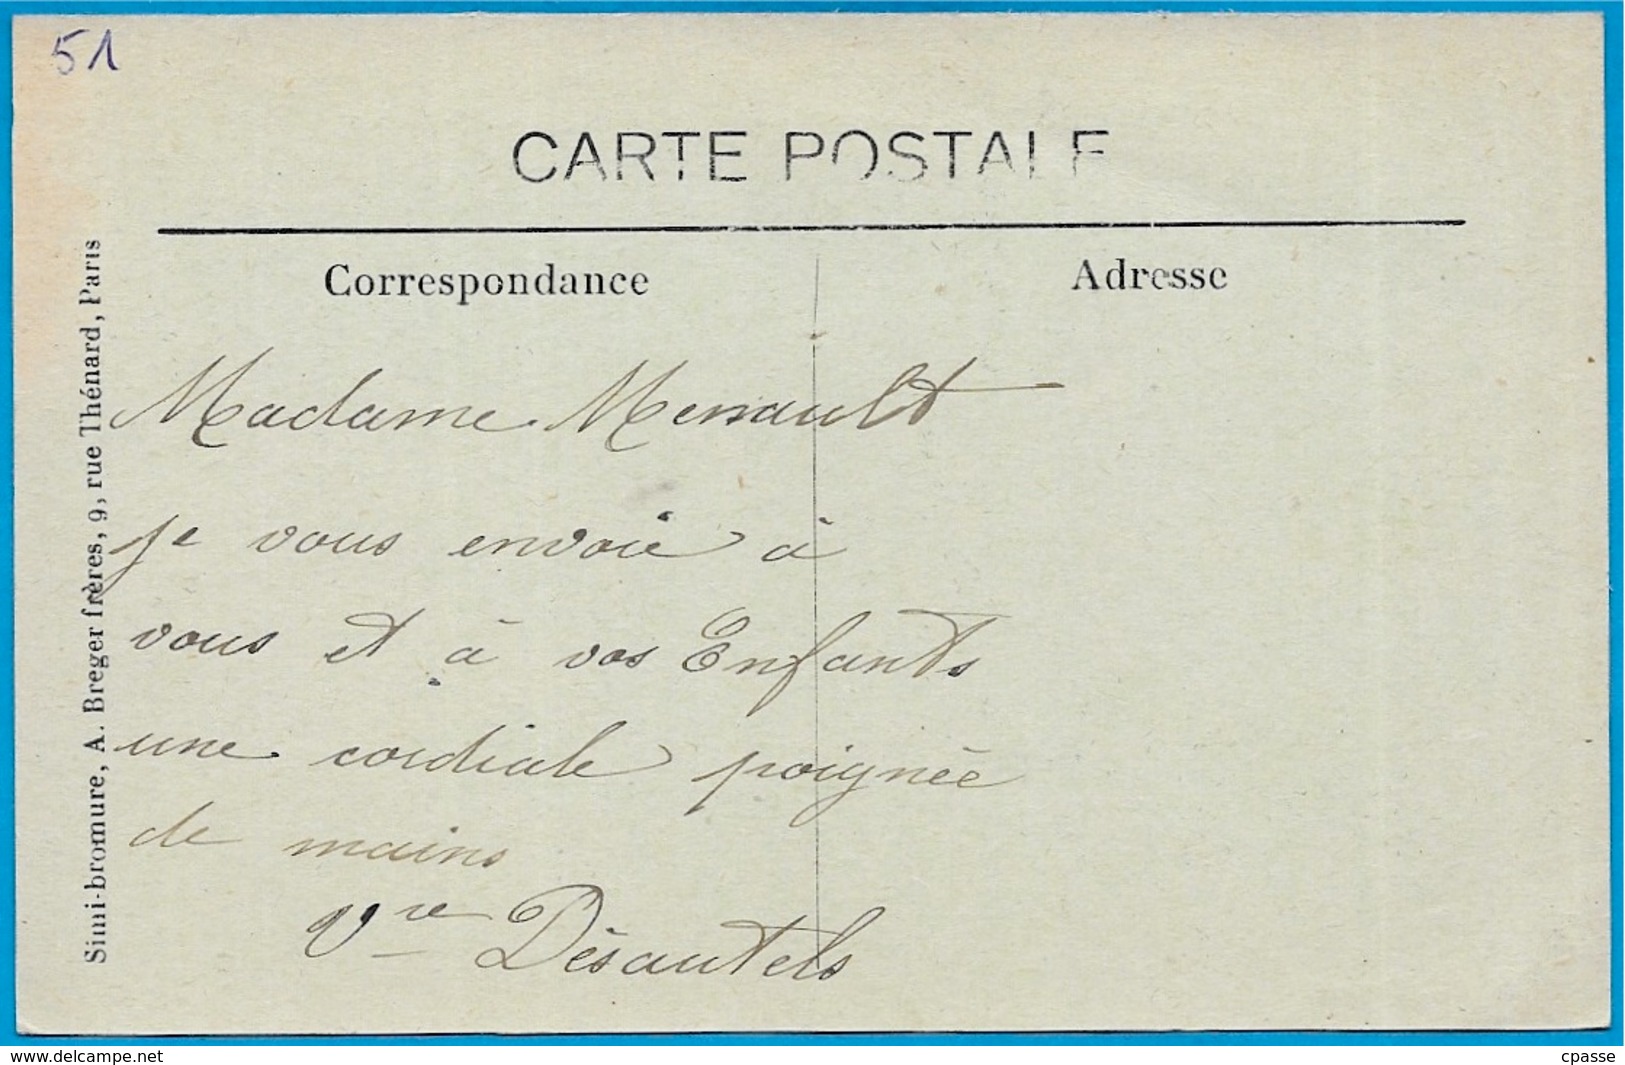 51
CARTE POSTALE
Correspondance
Adresse
Simi-bromure, A. Breger frères, 9, rue Thénard, Paris
Madame Menault
je vous envoie à
vous et à vos Enfants
une cordiale poignée
de mains
Vre Désautels
www.delcampe.net
cpasse